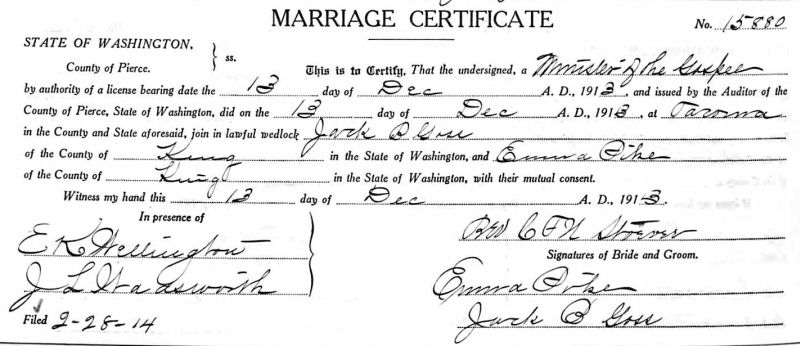 MARRIAGE CERTIFICATE
No. 15880
STATE OF WASHINGTON, } ss.
County of Pierce.
This is to Certify, That the undersigned, a Minister of the Gospel
by authority of a license bearing date the 13 day of Dec A. D., 1913, and issued by the Auditor of the
County of Pierce, State of Washington, did on the 13 day of Dec A. D., 1913, at Tacoma
in the County and State aforesaid, join in lawful wedlock Jack B Goss
of the County of King in the State of Washington, and Emma Pike
of the County of King in the State of Washington, with their mutual consent.
Witness my hand this 13 day of Dec A. D., 1913.
In presence of
E K Wellington
J L Wadsworth
Rev C F N Stoever
Signatures of Bride and Groom.
Emma Pike
Jack B Goss
Filed 2-28-14